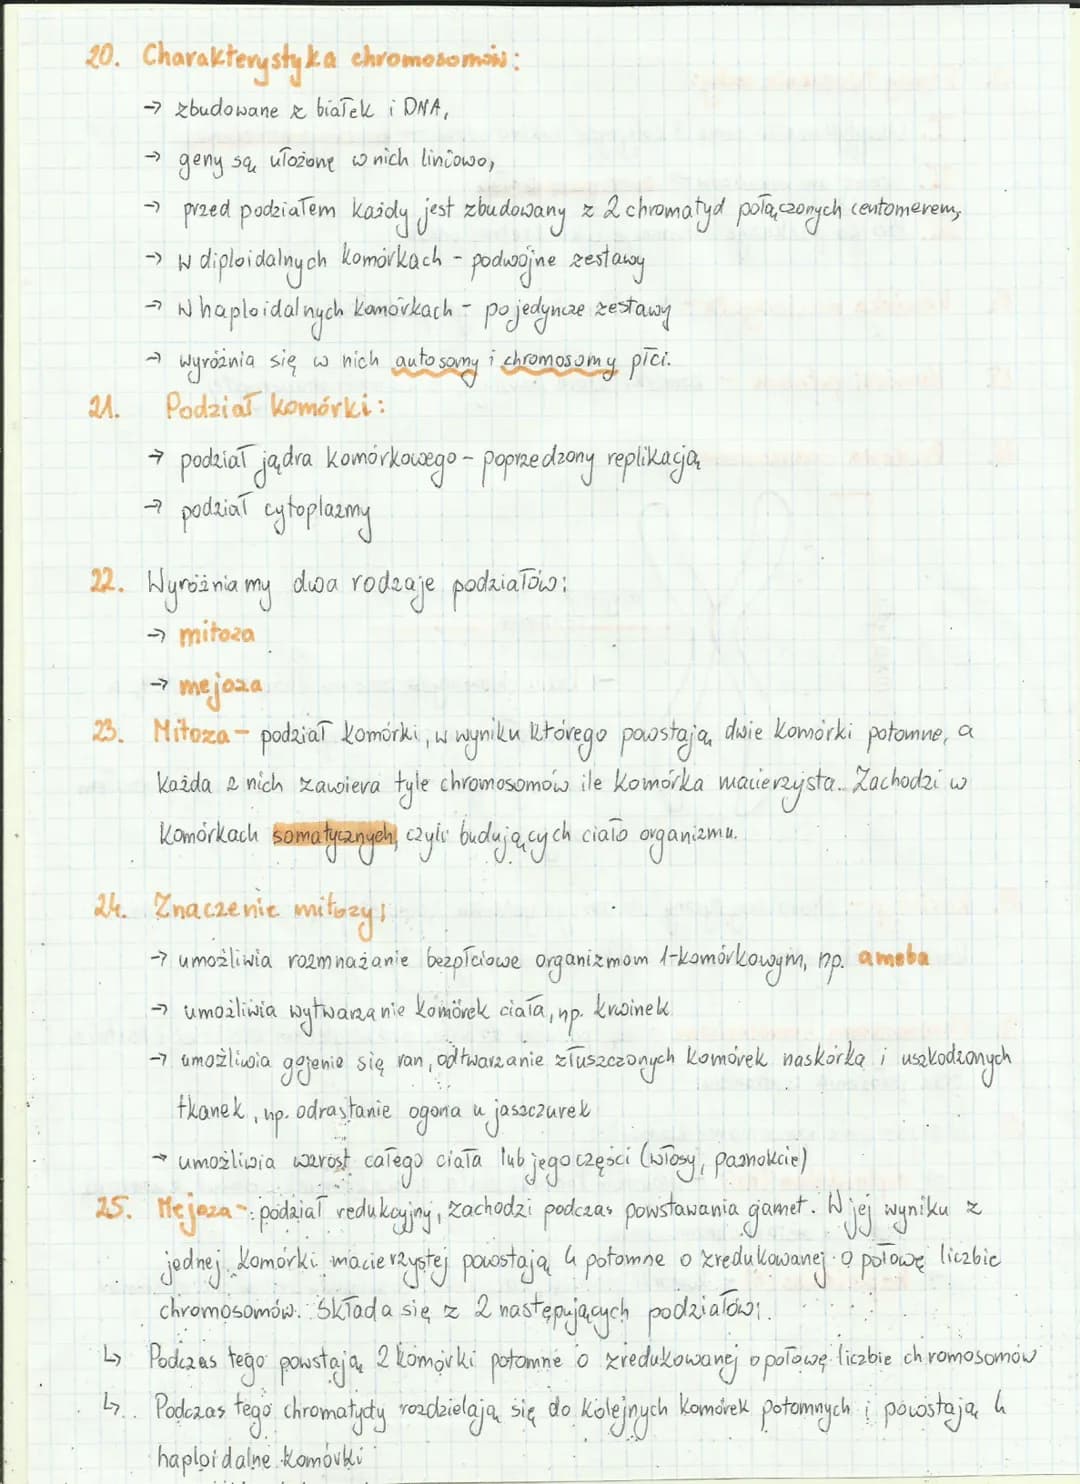 20. Charakterystyka chromosomów:
→ zbudowane z białek i DNA,
→ geny są ułożone w nich liniowo,
→ przed podziałem każdy jest zbudowany z 2 chromatyd połączonych centomerem,
→ w diploidalnych komórkach - podwójne zestawy
→ w haploidalnych komórkach - pojedyncze zestawy
→ wyróżnia się w nich autosomy i chromosomy płci.
21. Podział komórki:
→ podział jądra komórkowego - poprzedzony replikacją
→ podział cytoplazmy
22. Wyróżniamy dwa rodzaje podziałów:
→ mitoza
→ mejoza
23. Mitoza - podział komórki, w wyniku którego powstają dwie komórki potomne, a
każda z nich zawiera tyle chromosomów ile komórka macierzysta. Zachodzi w
komórkach somatycznych, czyli budujących ciało organizmu.
24. Znaczenie mitozy:
→ umożliwia rozmnażanie bezpłciowe organizmom 1-komórkowym, np. ameba
→ umożliwia wytwarzanie komórek ciała, np. krwinek
→ umożliwia gojenie się ran, odtwarzanie złuszczonych komórek naskórka i uszkodzonych
tkanek, np. odrastanie ogona u jaszczurek
→ umożliwia wzrost całego ciała lub jego części (włosy, paznokcie)
25. Mejoza - podział redukcyjny, zachodzi podczas powstawania gamet. W jej wyniku z
jednej komórki macierzystej powstają 4 potomne o zredukowanej o połowę liczbie
chromosomów. Składa się z 2 następujących podziałów:
↳ Podczas tego powstają 2 komórki potomne o zredukowanej o połowę liczbie chromosomów
↳ Podczas tego chromatydy rozdzielają się do kolejnych komórek potomnych i powstają 4
haploidalne komórki